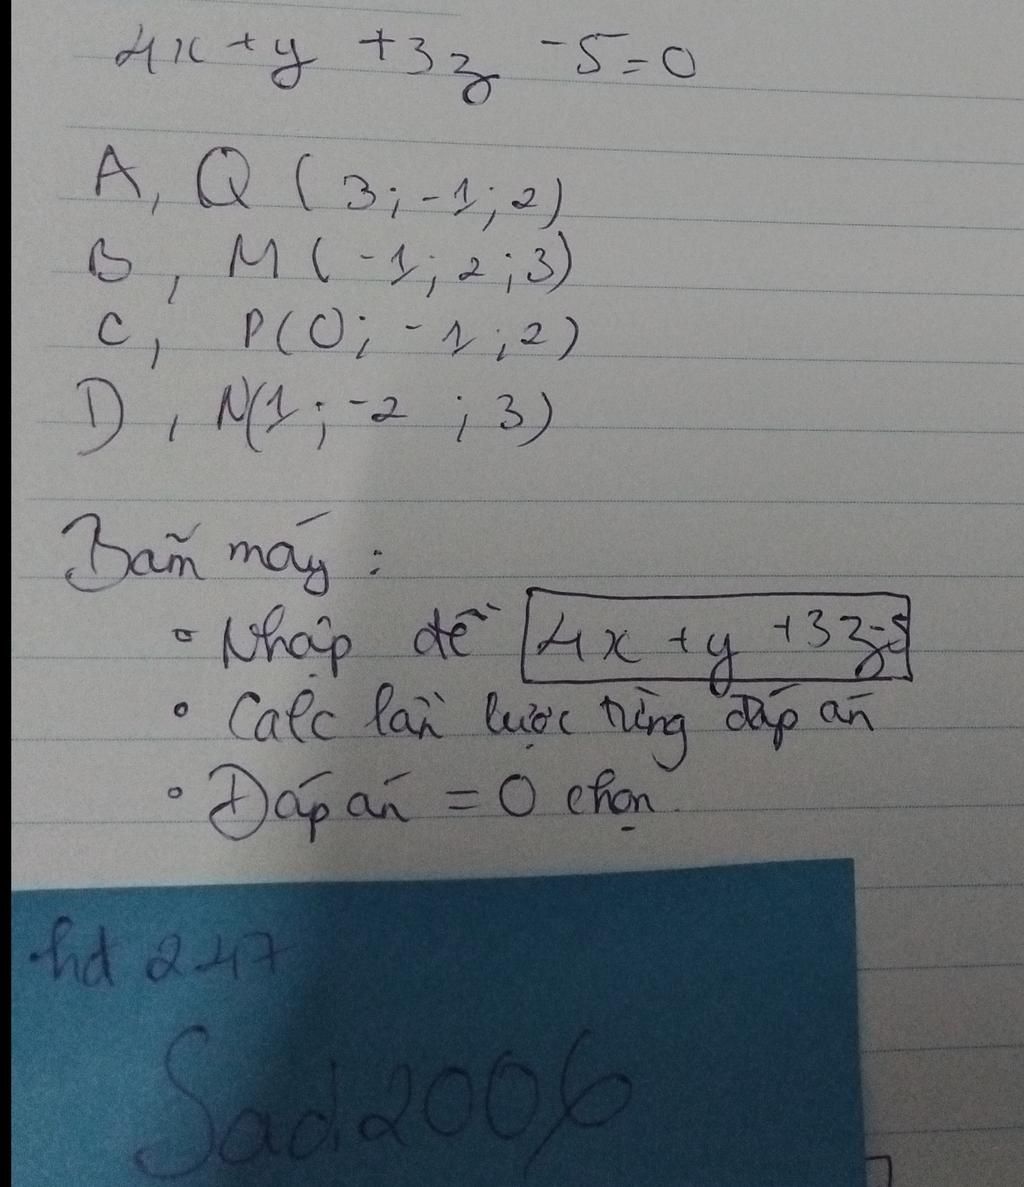 4x + y + 3z - 5 = 0
A, Q ( 3 ; -1 ; 2 )
B, M ( -1 ; 2 ; 3 )
C, P ( 0 ; -1 ; 2 )
D, N ( 1 ; -2 ; 3 )
Bấm máy :
• Nhập đề 4x + y + 3z - 5
• Calc lần lược từng đáp án
• Đáp án = 0 chọn
hd 247
Sad.2006